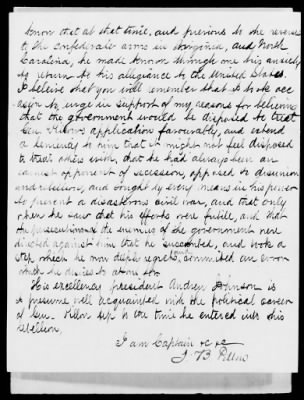 know that at that time, and previous to the reverse
to the Confederate arms in Virginia, and North
Carolina, he made known through me his anxiety
to return to his allegiance to the United States.
I believe that you will remember that I took occ
asion to urge in support of my reasons for believing
that the government would be disposed to treat
Gen. Pillow's application favourably, and extend
a lenency to him that it might not feel disposed
to treat others with, that he had always been an
earnest opponent of secession, opposed to disunion
and rebellion, and sought by every means in his power
to prevent a disastrous civil war, and that only
when he saw that his efforts were futile, and that
the persecutions of the enemies of the government were
directed against him that he succombed, and took a
step which he now deeply regrets, committed an error
which he desires to atone for.
His excellency president Andrew Johnson is
I presume well acquainted with the political career
of Gen. Pillow up to the time he entered into this
rebellion.
I am Captain &c &c
J B Pillow